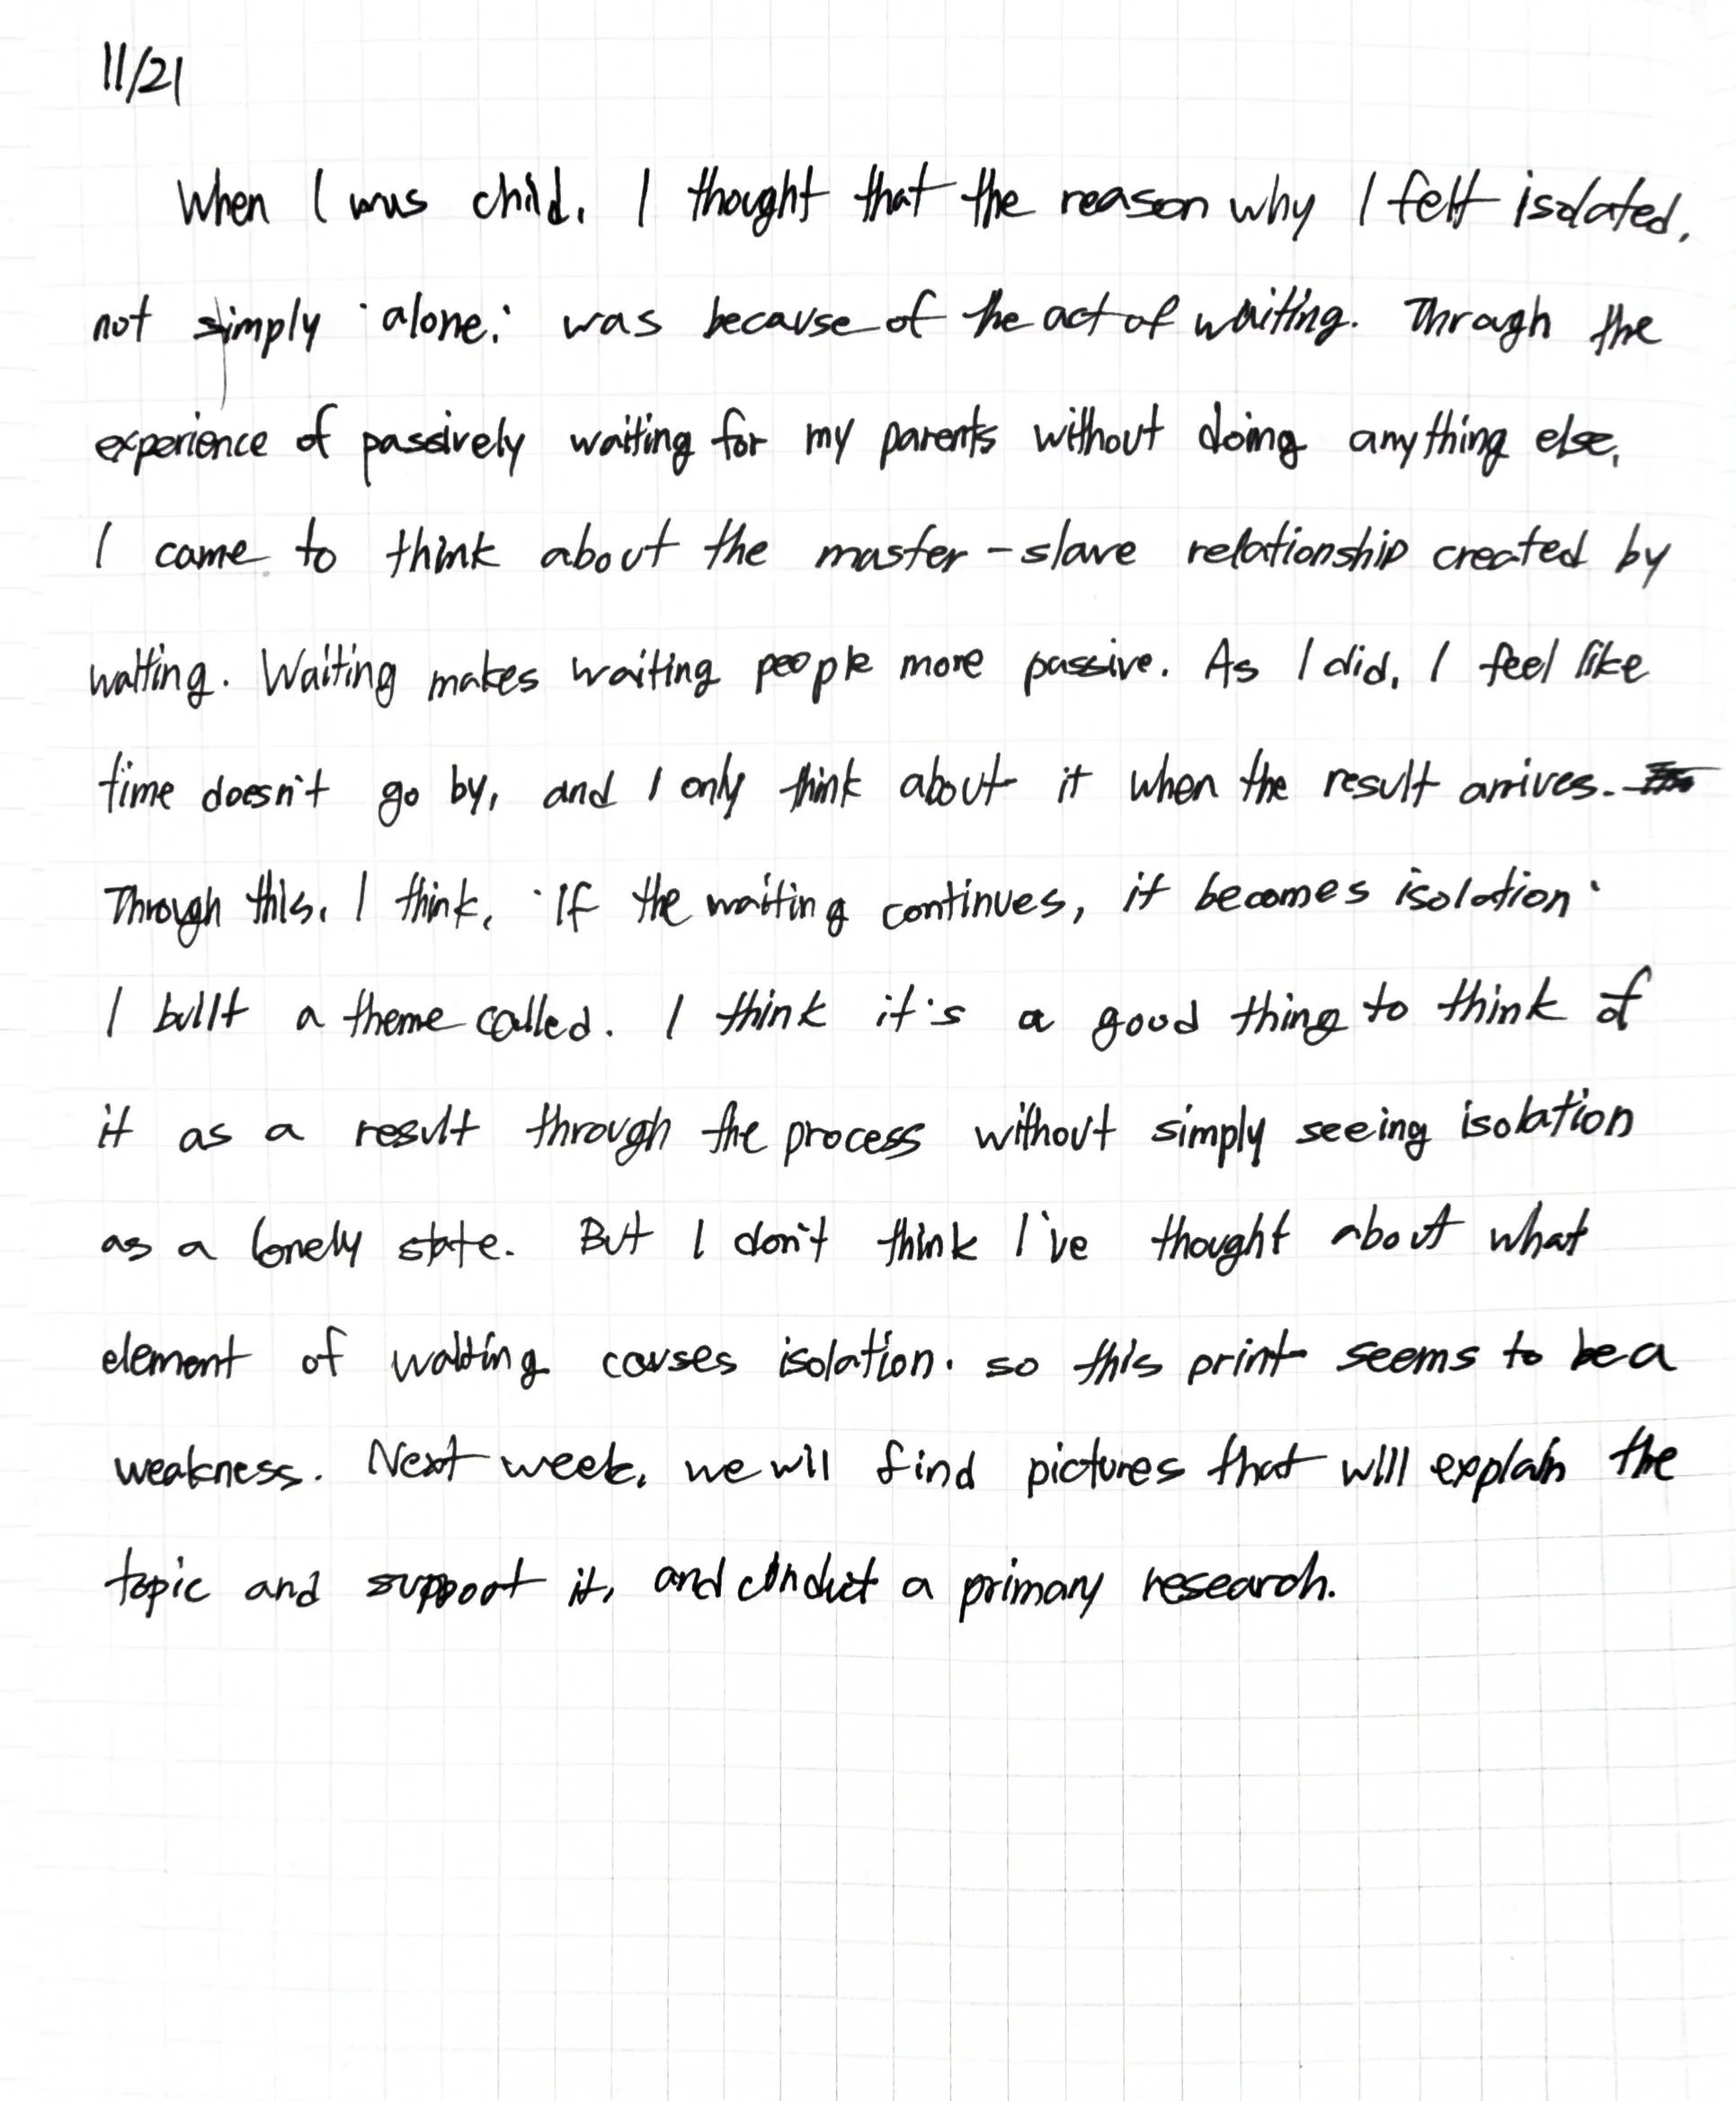 11/21
When I was child, I thought that the reason why I felt isolated,
not simply 'alone,' was because of the act of waiting. Through the
experience of passively waiting for my parents without doing anything else,
I came to think about the master-slave relationship created by
waiting. Waiting makes waiting people more passive. As I did, I feel like
time doesn't go by, and I only think about it when the result arrives.
Through this, I think, 'If the waiting continues, it becomes isolation'
I built a theme called. I think it's a good thing to think of
it as a result through the process without simply seeing isolation
as a lonely state. But I don't think I've thought about what
element of waiting causes isolation. so this print seems to be a
weakness. Next week, we will find pictures that will explain the
topic and support it, and conduct a primary research.